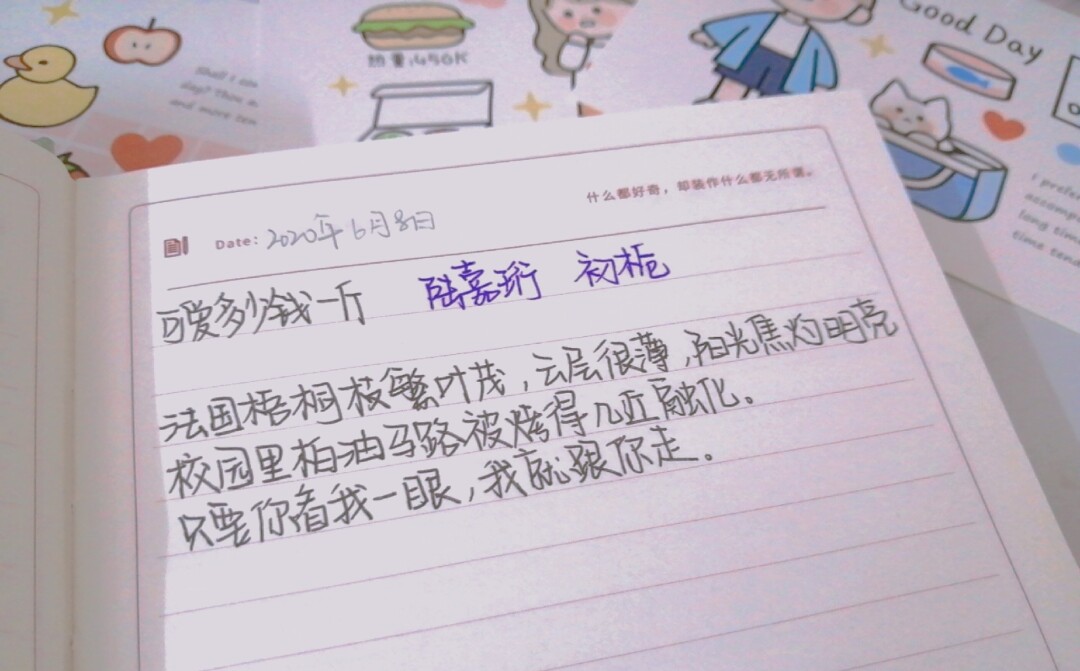 热量:145GK
Good Day
Shall I com
day? Thou a
and more tem
I prefe
accompa
long time
time tend
什么都好奇，却装作什么都无所谓。
Date: 2020年6月8日
可爱多少钱一斤 陆嘉珩 初栀
法国梧桐枝繁叶茂，云层很薄，阳光焦灼明亮
校园里柏油马路被烤得几近融化。
只要你看我一眼，我就跟你走。